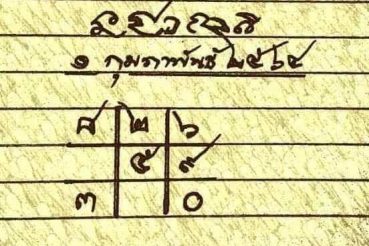 ๑ กุมภาพันธ์ ๒๕๖๔
๘ ๒ ๖
๕ ๙
๓ ๐